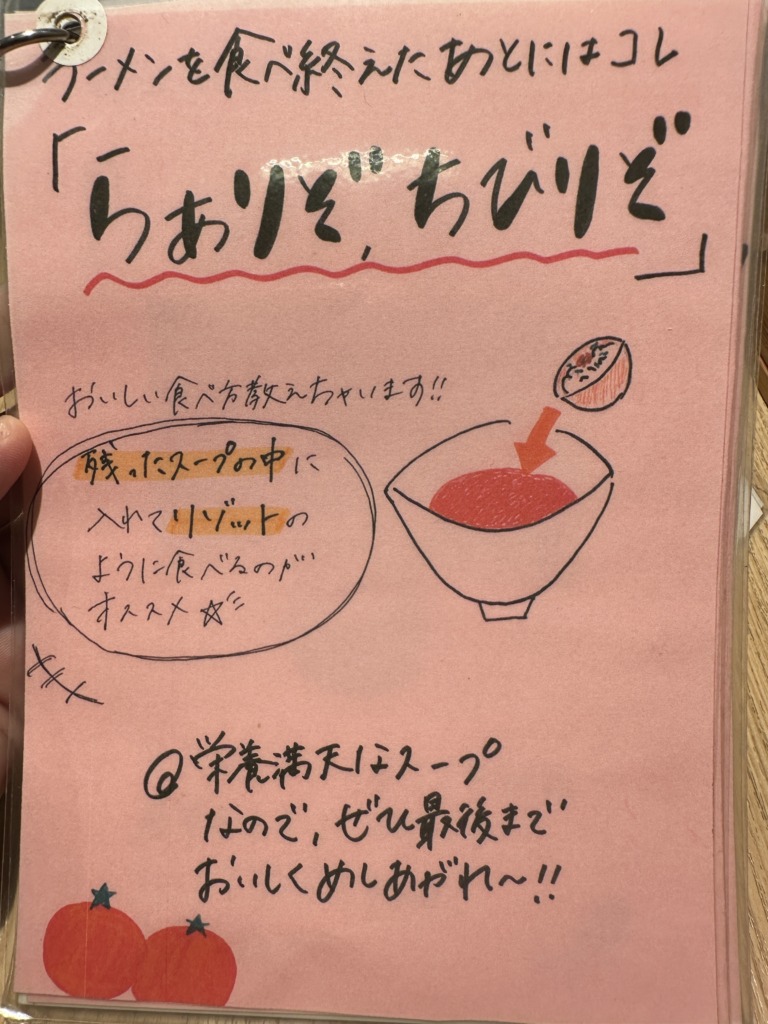 ラーメンを食べ終えたあとにはコレ
「らぁりぞ,ちびりぞ」
おいしい食べ方教えちゃいます!!
残ったスープの中に
入れてリゾットの
ように食べるのが
オススメ☆彡
@栄養満天なスープ
なので,ぜひ最後まで
おいしくめしあがれ〜!!